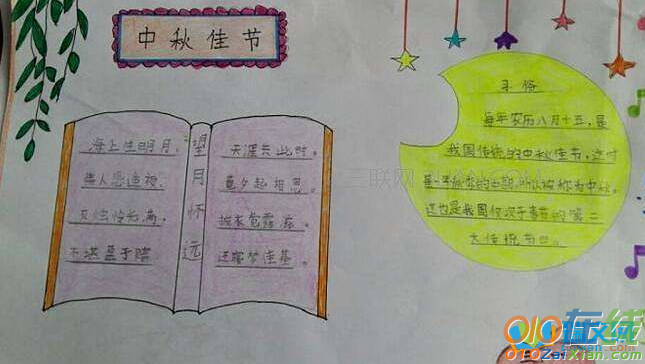 中秋佳节
海上生明月，
情人怨遥夜，
灭烛怜光满，
不堪盈手赠
望月怀远
天涯共此时。
竟夕起相思。
披衣觉露滋。
还寝梦佳
习俗
每年农历八月十五，是
我国传统的中秋佳节，这时
是一年秋季的中期，所以被称为中秋。
这也是我国仅次于春节的第二
大传统节日。
三联网
在线
010ZaiXian.com